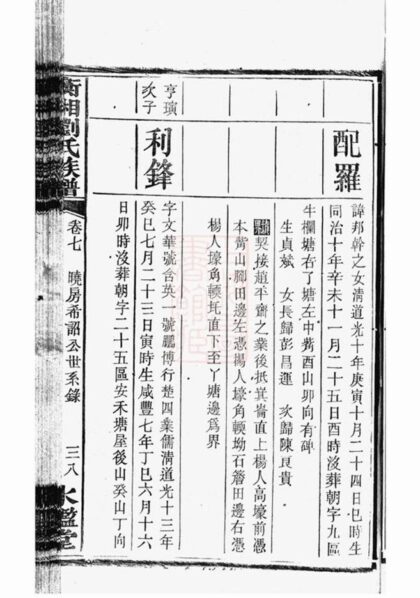 配羅
諱邦幹之女清道光十年庚寅十月二十四日巳時生
同治十年辛未十一月二十五日酉時沒葬朝字九區
牛欄塘右丫塘左中嘴酉山卯向有碑
生貞斌 女長歸彭昌運 次歸陳良貴
契接趙平齋之業後抵箕崙直上楊人高壕前憑
本嘴山腳田邊左憑楊人壕角頓坳石簪田邊右憑
楊人壕角頓圫直下至丫塘邊爲界
亨璜
次子
利鋒
字文華號含英一號鵬博行楚四業儒清道光十三年
癸巳七月二十三日寅時生咸豐七年丁巳六月十六
日卯時沒葬朝字二十五區安禾塘屋後山癸山丁向
衡湘劉氏族譜
卷七
曉房希韶公世系錄
三八
水鑑堂